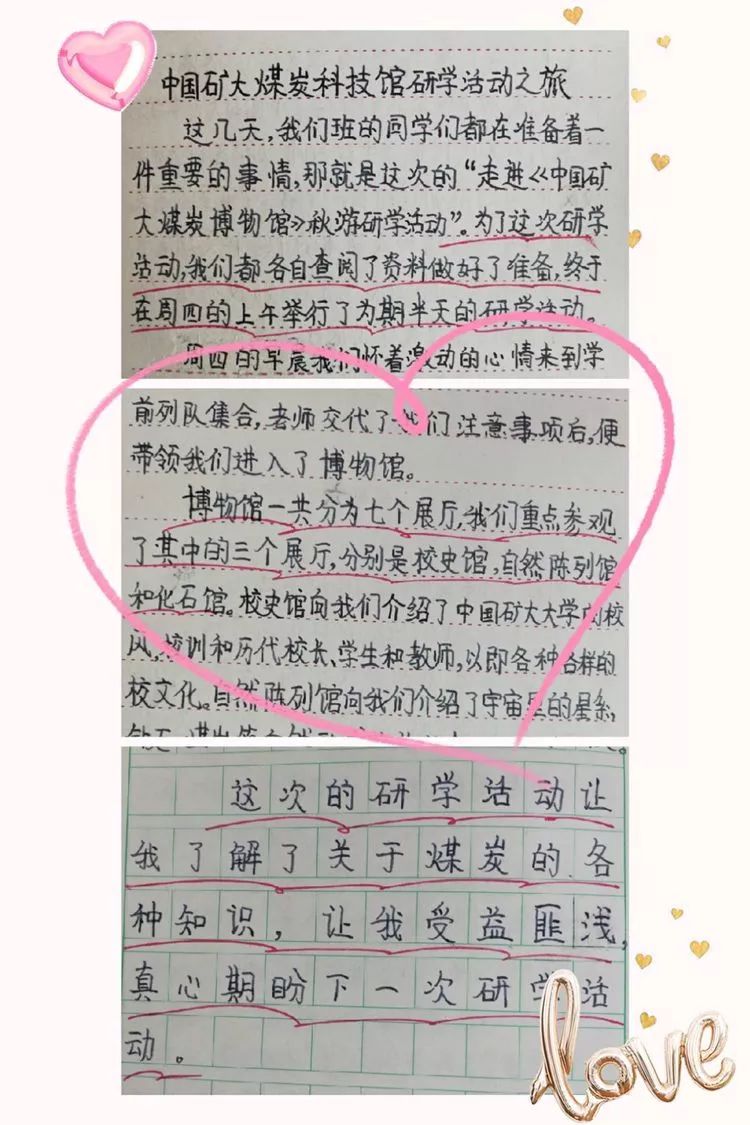 中国矿大煤炭科技馆研学活动之旅
这几天,我们班的同学们都在准备着一
件重要的事情,那就是这次的“走进《中国矿
大煤炭博物馆》秋游研学活动”。为了这次研学
活动,我们都各自查阅了资料做好了准备,终于
在周四的上午举行了为期半天的研学活动。
周四的早晨我们怀着激动的心情来到学
前列队集合,老师交代了我们注意事项后,便
带领我们进入了博物馆。
博物馆一共分为七个展厅,我们重点参观
了其中的三个展厅,分别是校史馆,自然陈列馆
和化石馆。校史馆向我们介绍了中国矿大大学的校
风,校训和历代校长、学生和教师,以即各种各样的
校文化。自然陈列馆向我们介绍了宇宙里的星系,
这次的研学活动让
我了解了关于煤炭的各
种知识,让我受益匪浅,
真心期盼下一次研学活
动。
love